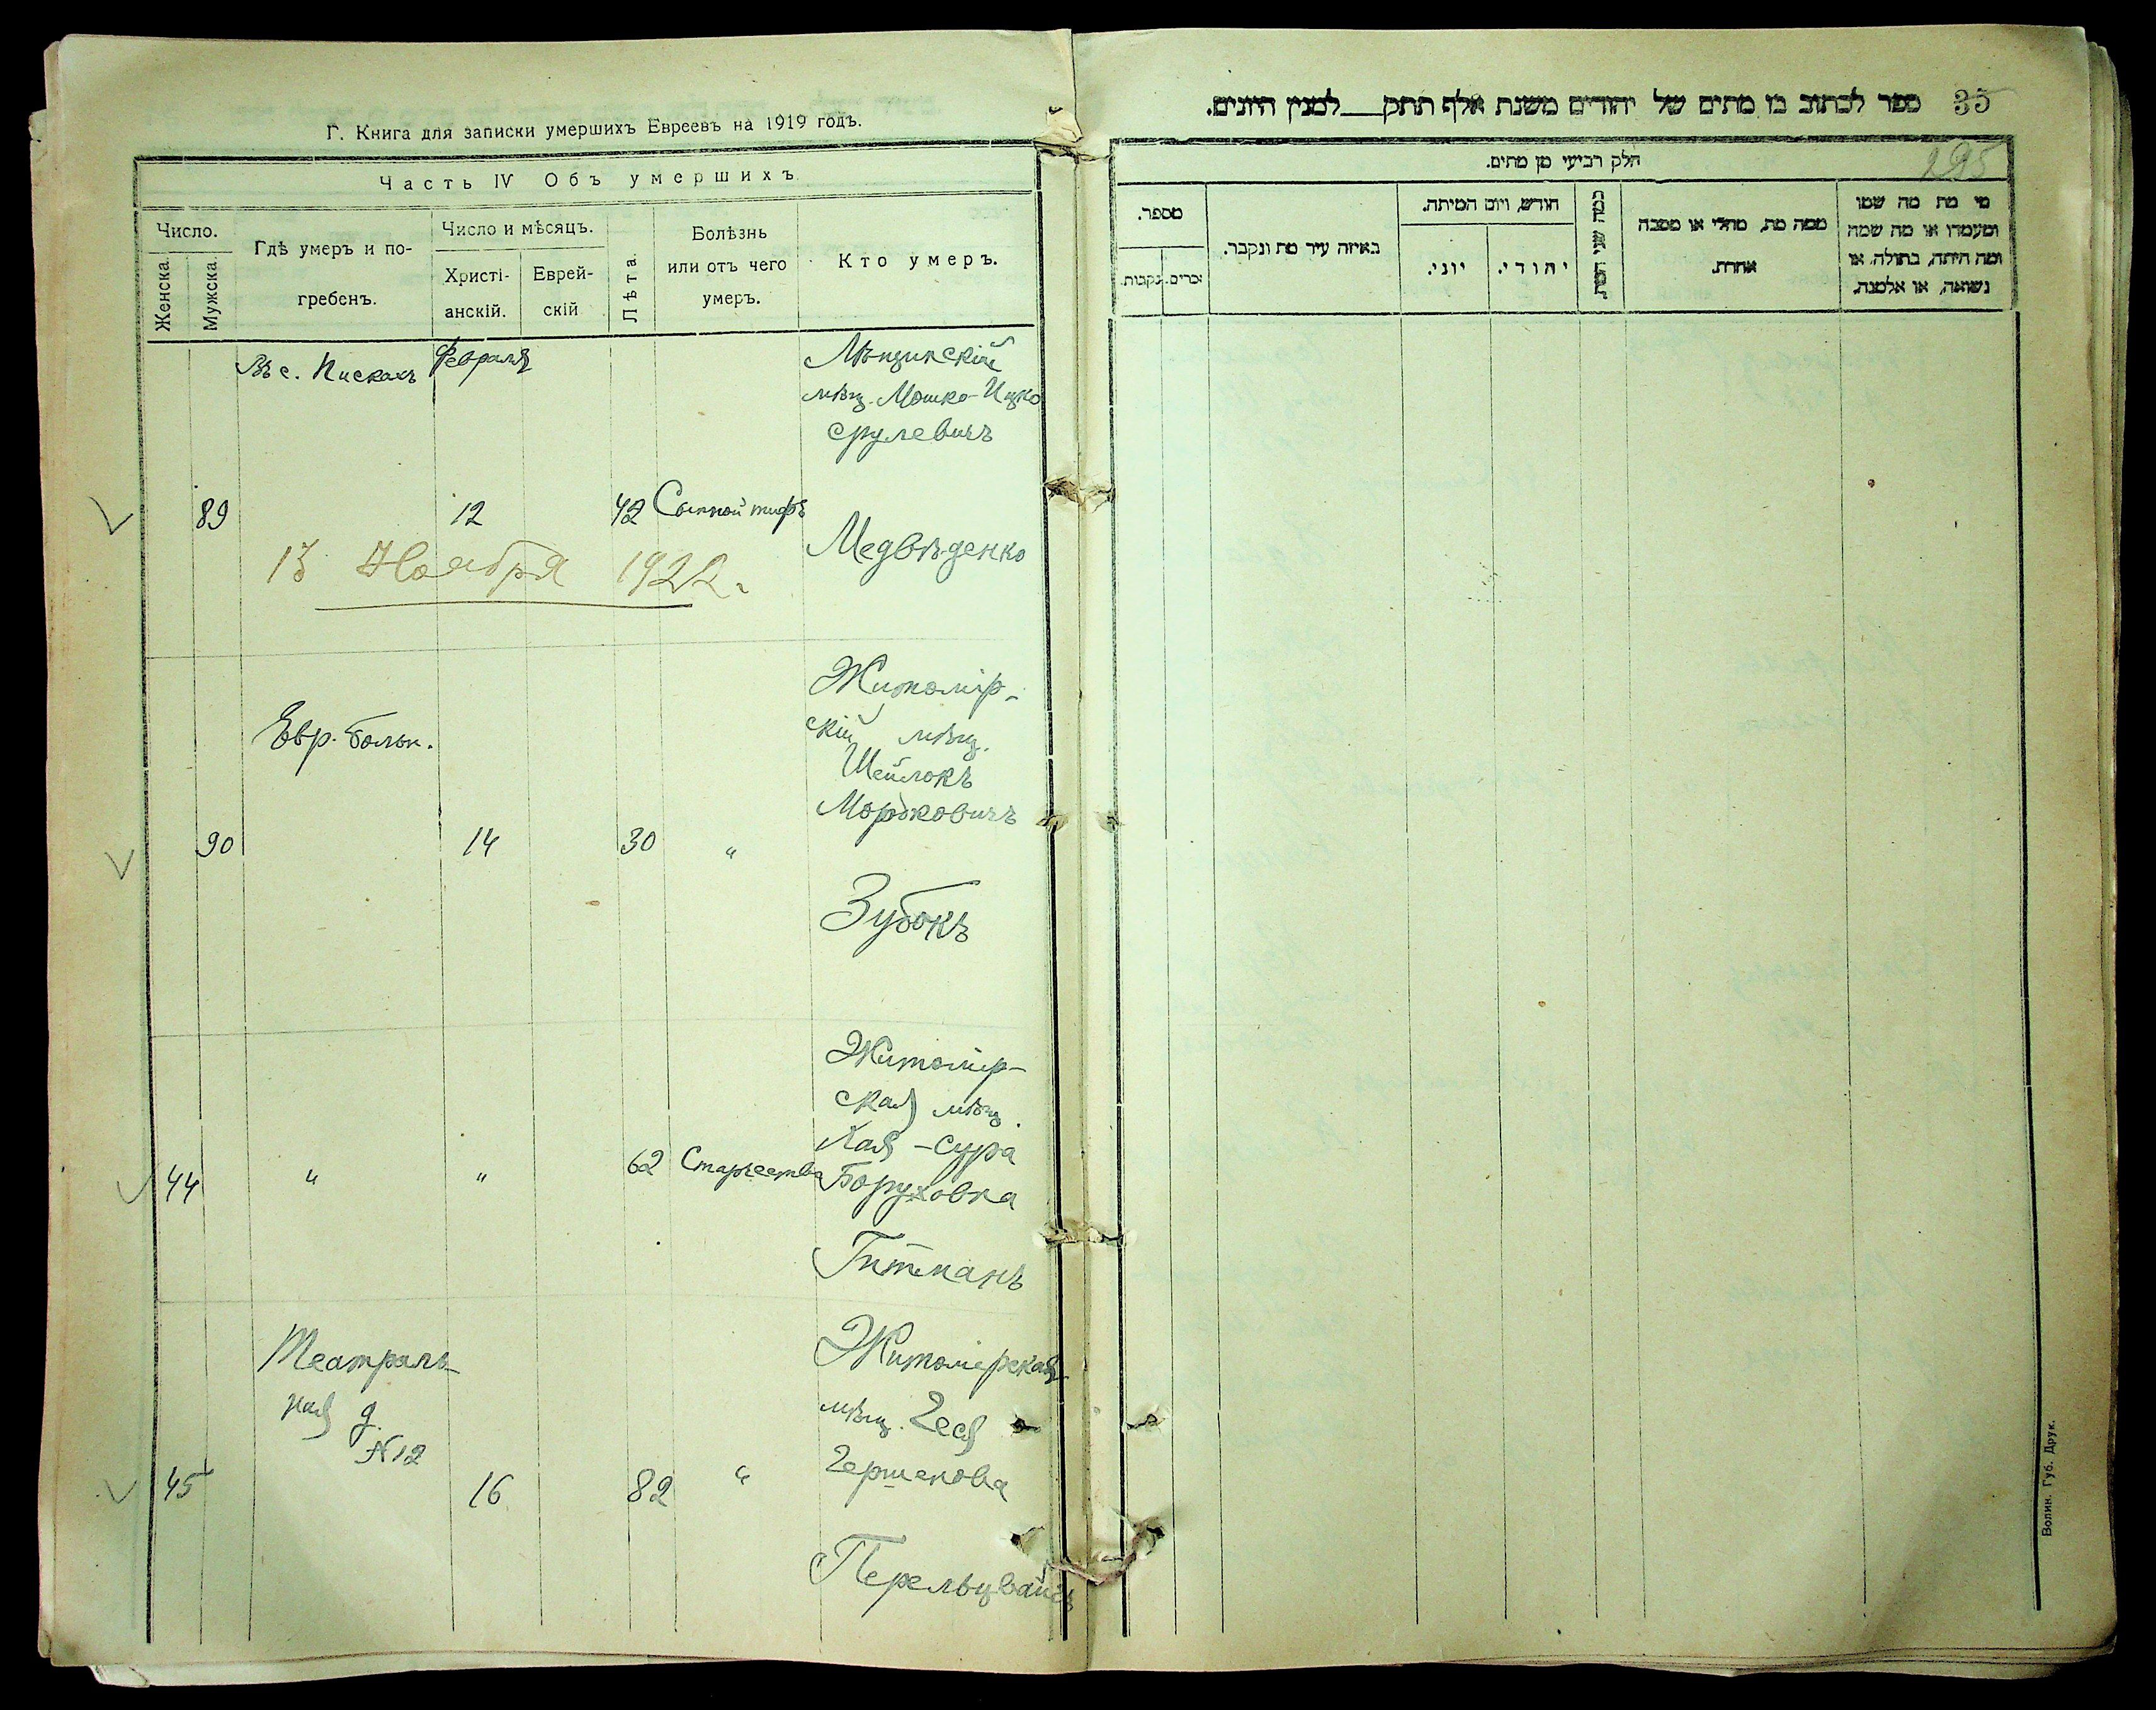 Г. Книга для записки умершихъ Евреевъ на 1919 годъ.
Часть IV Объ умершихъ
Число.
Женска
Мужска.
Гдѣ умеръ и по-
гребенъ.
Число и мѣсяцъ.
Христі-
анскій.
Еврей-
скій
Лѣта.
Болѣзнь
или отъ чего
умеръ.
Кто умеръ.
Въ с. Пискахъ
Февраля
мѣщ. Мошко-Ицко
Срулевичъ
89
12
42
Сыпной тифъ
Медвѣденко
13 Ноября 1922 г.
Житомір-
скій мѣщ.
Евр. больн.
Шейлокъ
Морьковичъ
90
14
30
"
Зубокъ
Житомір-
ская мѣщ.
Хая-Сура
44
"
"
62
Старчества
Боруховна
Гитманъ
Театраль-
ная д.
№12
Житомірская
мѣщ.
45
16
82
"
Перельцвайгъ
ספר לכתוב בו מתים של יהודים משנת אלף תתק___למנין היונים.
35
295
חלק רביעי מן מתים.
מספר.
זכרים.
נקבות.
באיזה עיר מת ונקבר.
חודש, ויום המיתה.
יוני.
יהודי.
כמה שני המת.
ממה מת, מחלי או מסבה
אחרת.
מי מת מה שמו
ומעמדו או מה שמה
ומה היתה, בתולה, או
נשואה, או אלמנה.
Волин. Губ. Друк.